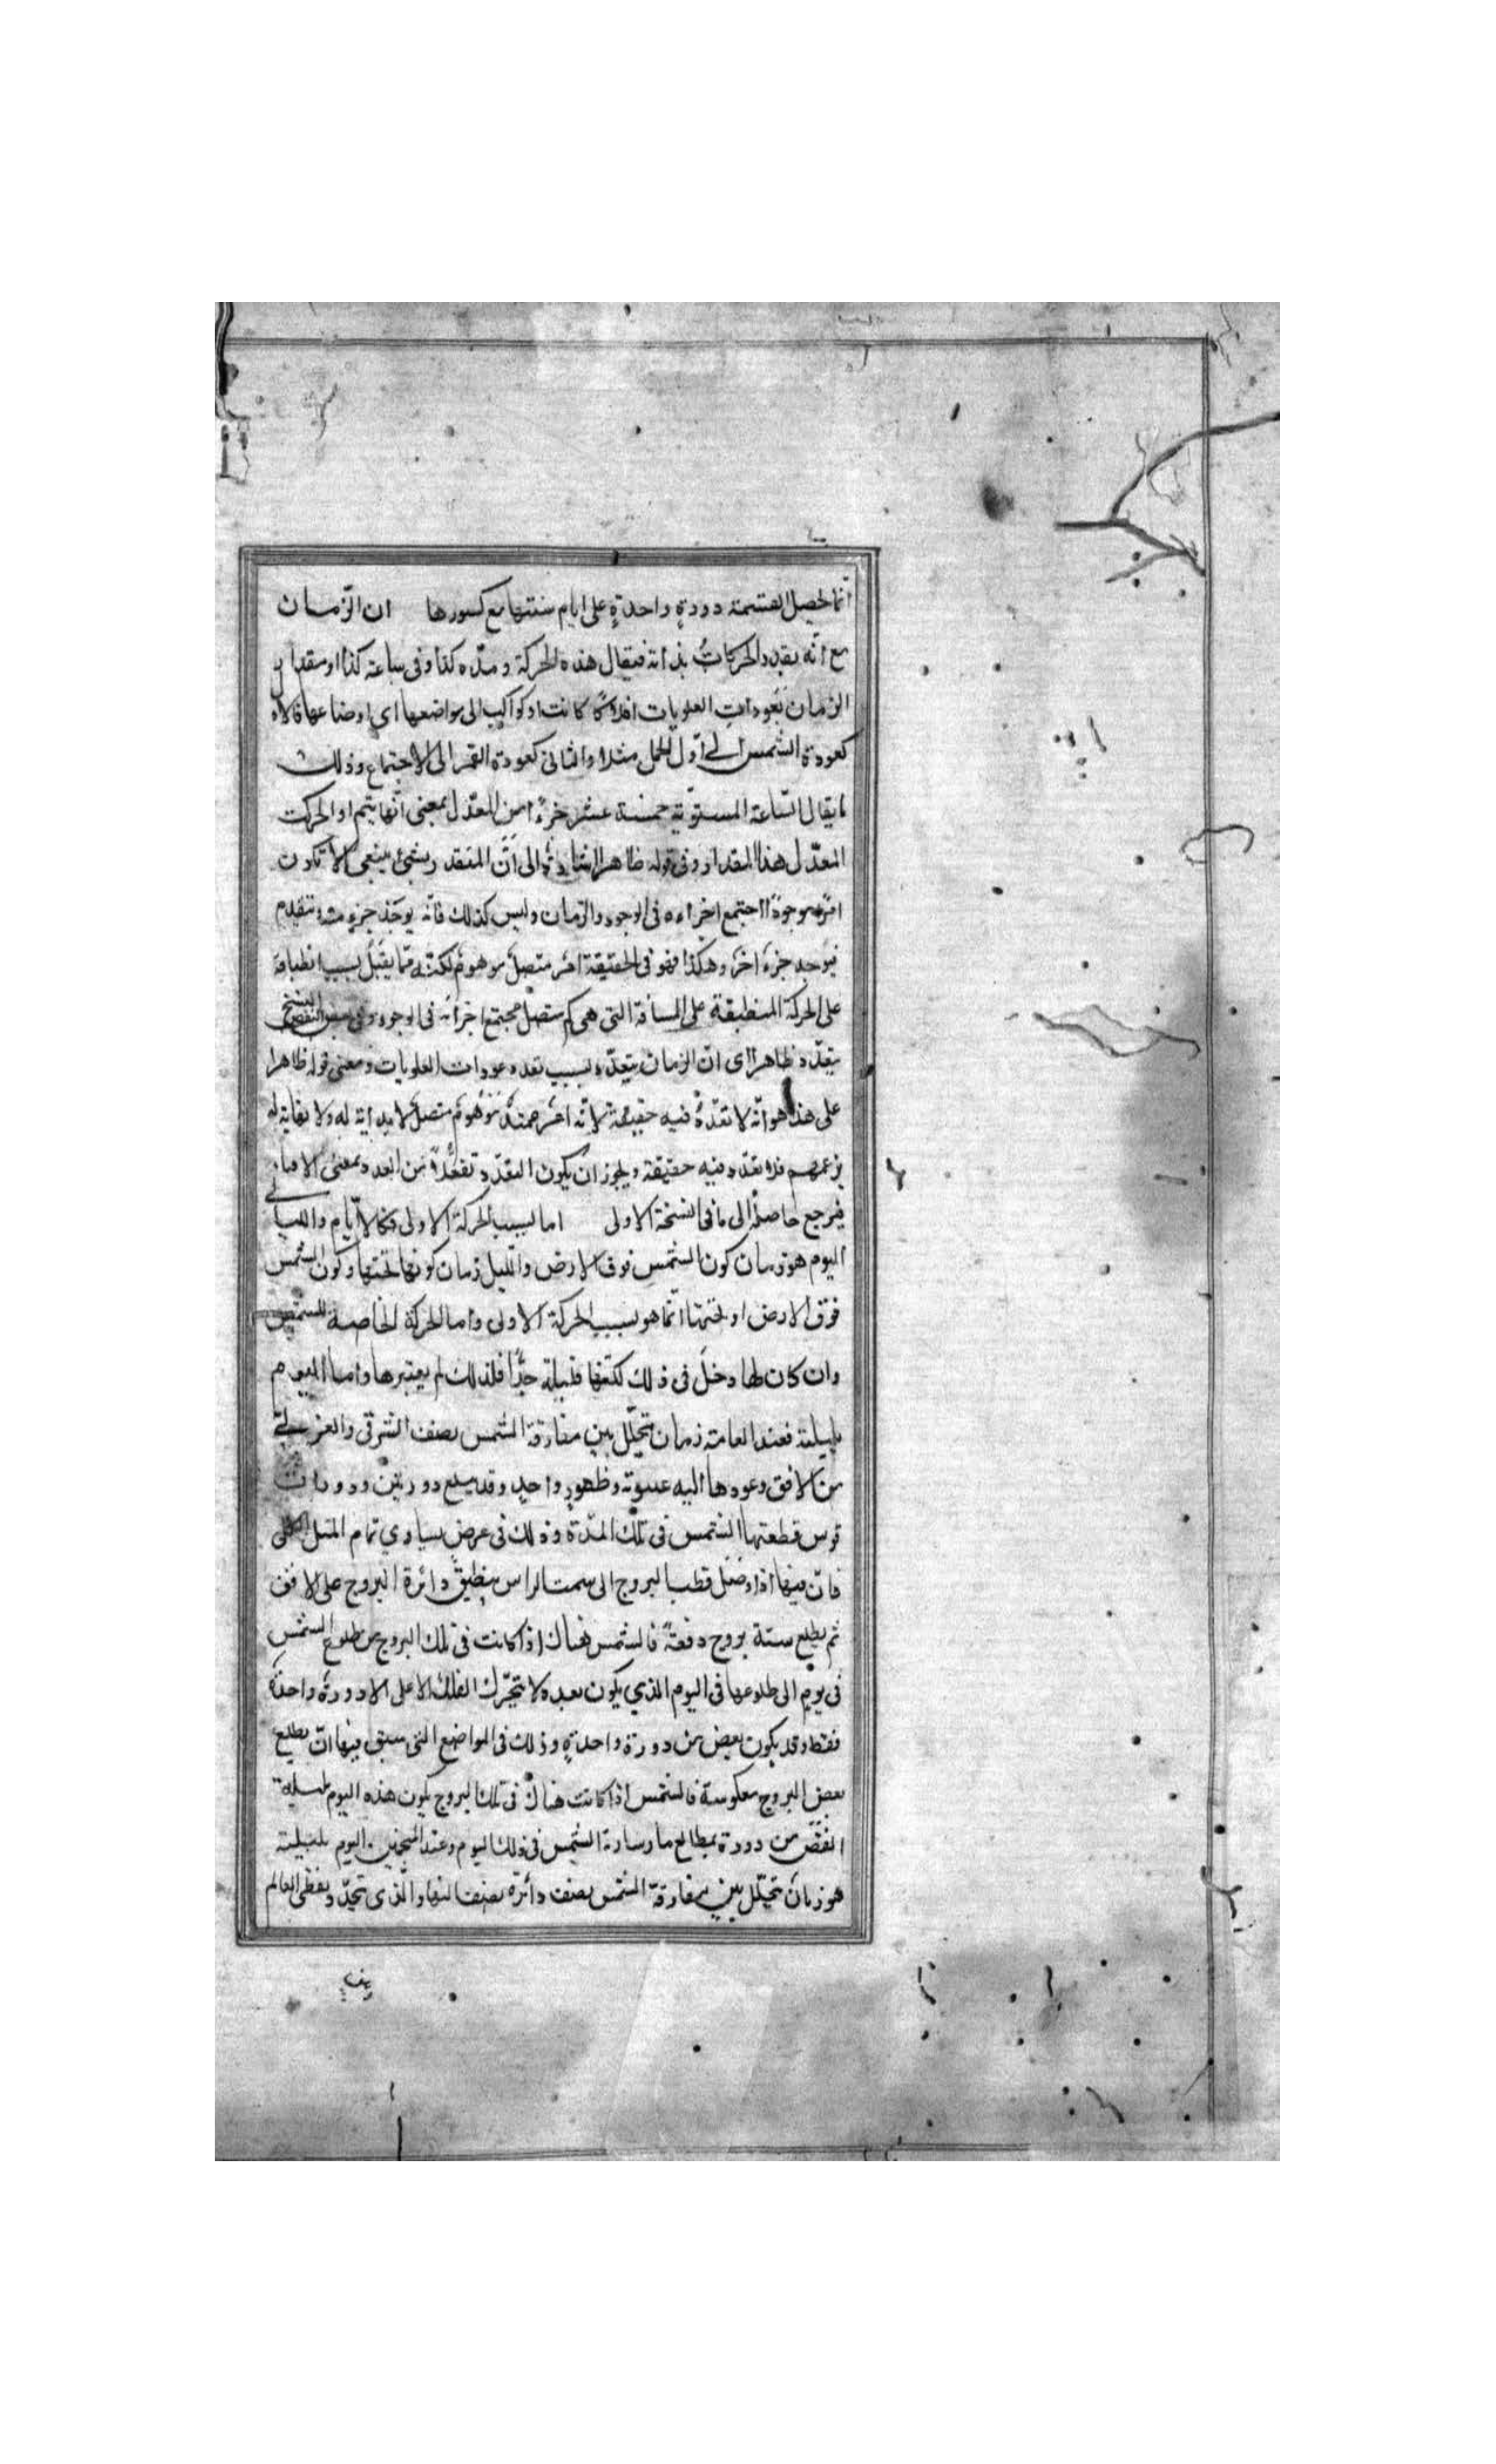 انما تحصل القسمة دورة واحدة على ايام سنتها مع كسورها ان الزمان
مع انه يقدر الحركات بذاته فيقال هذه الحركة ومدّه كذا وفى ساعة كذا او مقدار
الزمان بعودات العلويات افلاكًا كانت او كواكب الى مواضعها اى اوضاعها فالاول
كعودة الشمس الى اول الحمل مثلا والثانى كعودة القمر الى الاجتماع وذلك
ما يقال الساعة المستوية خمسة عشر جزءًا من المعدّل بمعنى انها يتم او الحركت
المعدّل هذا المقدار وفى قوله ظاهرا اشارة الى انّ المتقدر بشئ ينبغى الا تكون
امرًا موجودًا اجتمع اجزاءه فى الوجود والزمان وليس كذلك فانه يوجد جزء منه تتقدم
فيوجد جزء اخر وهكذا فهو فى الحقيقة امر متصل موهوم لكنّه مما يقبل بسبب انطباقه
على الحركة المنطبقة على المسافة التى هى كم متصل مجتمع اجزائه فى الوجود وفى بعض النسخ
يتعدّد ظاهرا اى انّ الزمان يتعدّد بسبب تعدد عودات العلويات ومعنى قوله ظاهرا
على هذا هو انّه لا تعدّد فيه حقيقة لانّه امر ممتدّ موهوم متصل لا بداية له ولا نهاية له
بزعمهم فلا تعدّد فيه حقيقة ويجوز ان يكون التعدّد تفعّلا من العد وبمعنى الافناء
فيرجع حاصله الى ما فى النسخة الاولى اما بسبب الحركة الاولى فكالايّام والليالى
اليوم هو زمان كون الشمس فوق الارض والليل زمان كونها تحتها وكون الشمس
فوق الارض او تحتها انّما هو بسبب الحركة الاولى واما الحركة الخاصة للشمس
وان كان لها دخل فى ذلك لكنّها قليلة جدّا فلذلك لم يعتبرها واما اليوم
بليلته فعند العامة زمان تخلّل بين مفارقة الشمس نصف الشرقى والغربى
من الافق وعودها اليه عنوته وظهور واحد وقد يسع دورتين ودورات
قوس قطعتها الشمس فى تلك المدّة وذلك فى عرض يساوي تمام الميل الكلى
فانّ فيها اذا وصل قطب البروج الى سمت الراس ينطبق دائرة البروج على الافق
ثم يطلع ستة بروج دفعةً فالشمس هناك اذا كانت فى تلك البروج من طلوع الشمس
فى يوم الى طلوعها فى اليوم الذي يكون بعده لا يتحرّك الفلك الاعلى الا دورة واحدة
فقط وقد يكون بعض من دورة واحدة وذلك فى المواضع التى سبق فيها انّ يطلع
بعض البروج معكوسة فالشمس اذا كانت هناك فى تلك البروج يكون هذه اليوم بليلية
انقص من دورة بمطالع ما سارته الشمس فى ذلك اليوم وعند المنجمين اليوم بليلته
هو زمان تخلّل بين مفارقة الشمس نصف دائرة نصف النهار الّذى تحدّد بقطبى العالم